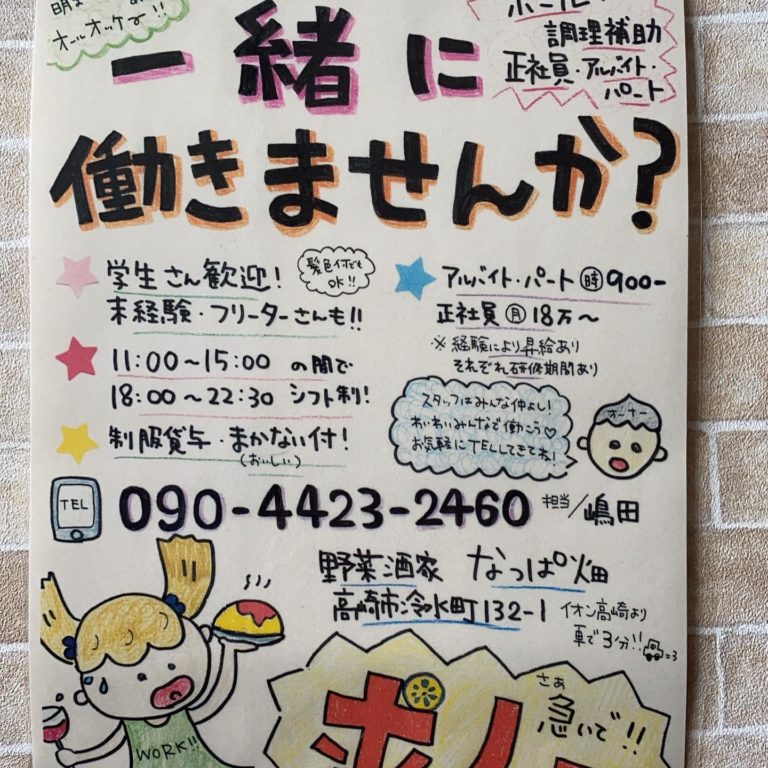 オールオッケー!!
調理補助
正社員・アルバイト・
パート
一緒に
働きませんか?
学生さん歓迎!
未経験・フリーターさんも!!
髪色何でも
OK!!
11:00〜15:00 の間で
18:00〜22:30 シフト制!
制服貸与・まかない付!
(おいしい)
アルバイト・パート 時 900-
正社員 月 18万〜
※経験により昇給あり
それぞれ研修期間あり
スタッフはみんな仲よし!
わいわいみんなで働こう♡
お気軽にTELしてきてね!
オーナー
TEL
090-4423-2460 担当/嶋田
野菜酒家 なっぱ畑
高崎市冷水町132-1 イオン高崎より
車で3分!!
さぁ
急いで!!
WORK!!